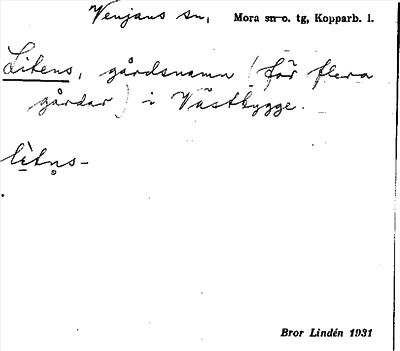 Venjans sn, Mora sn o. tg, Kopparb. l.
Litens, gårdsnamn (för flera
gårdar) i Västbygge.
lìtn̥s-
Bror Lindén 1931